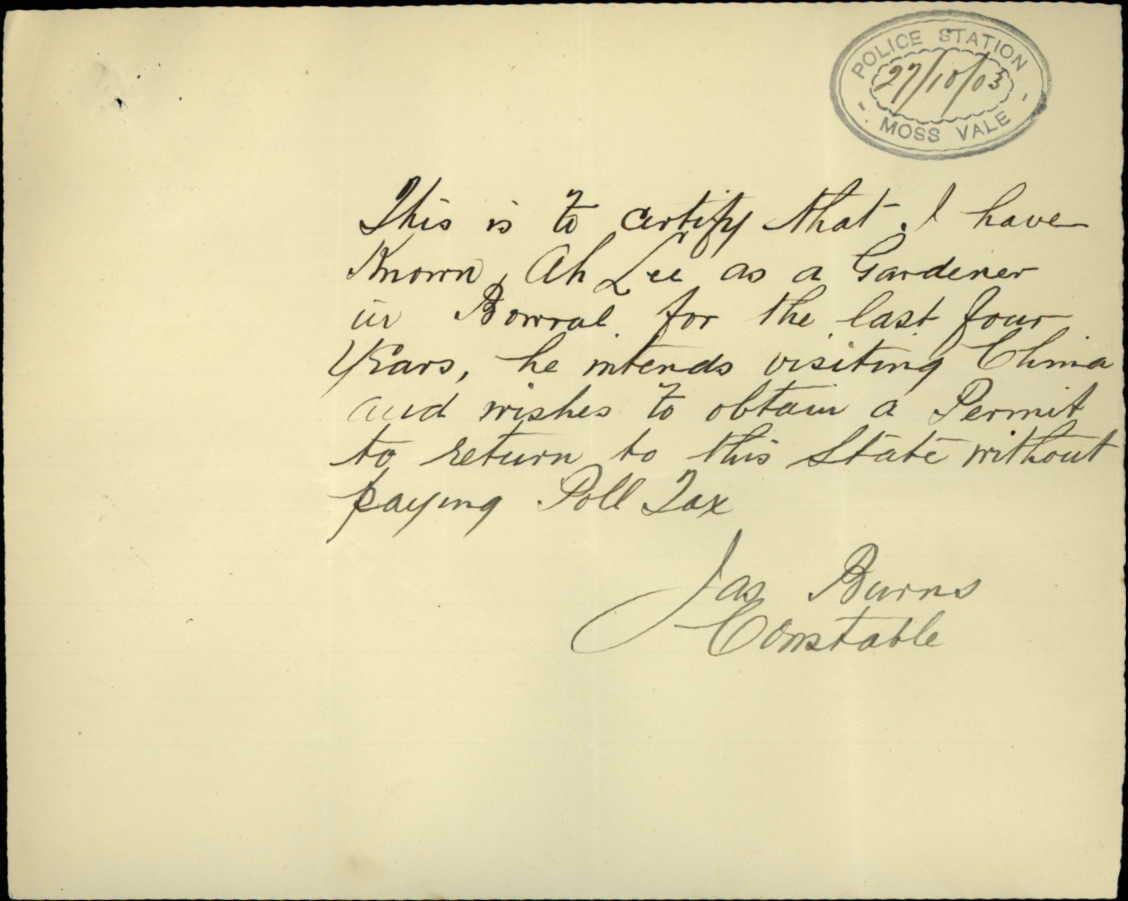 POLICE STATION
27/10/03
MOSS VALE
This is to certify that I have
Known, Ah Lee as a Gardener
in Bowral for the last four
Years, he intends visiting China
and wishes to obtain a Permit
to return to this State without
paying Poll Tax
Jas Burns
Constable